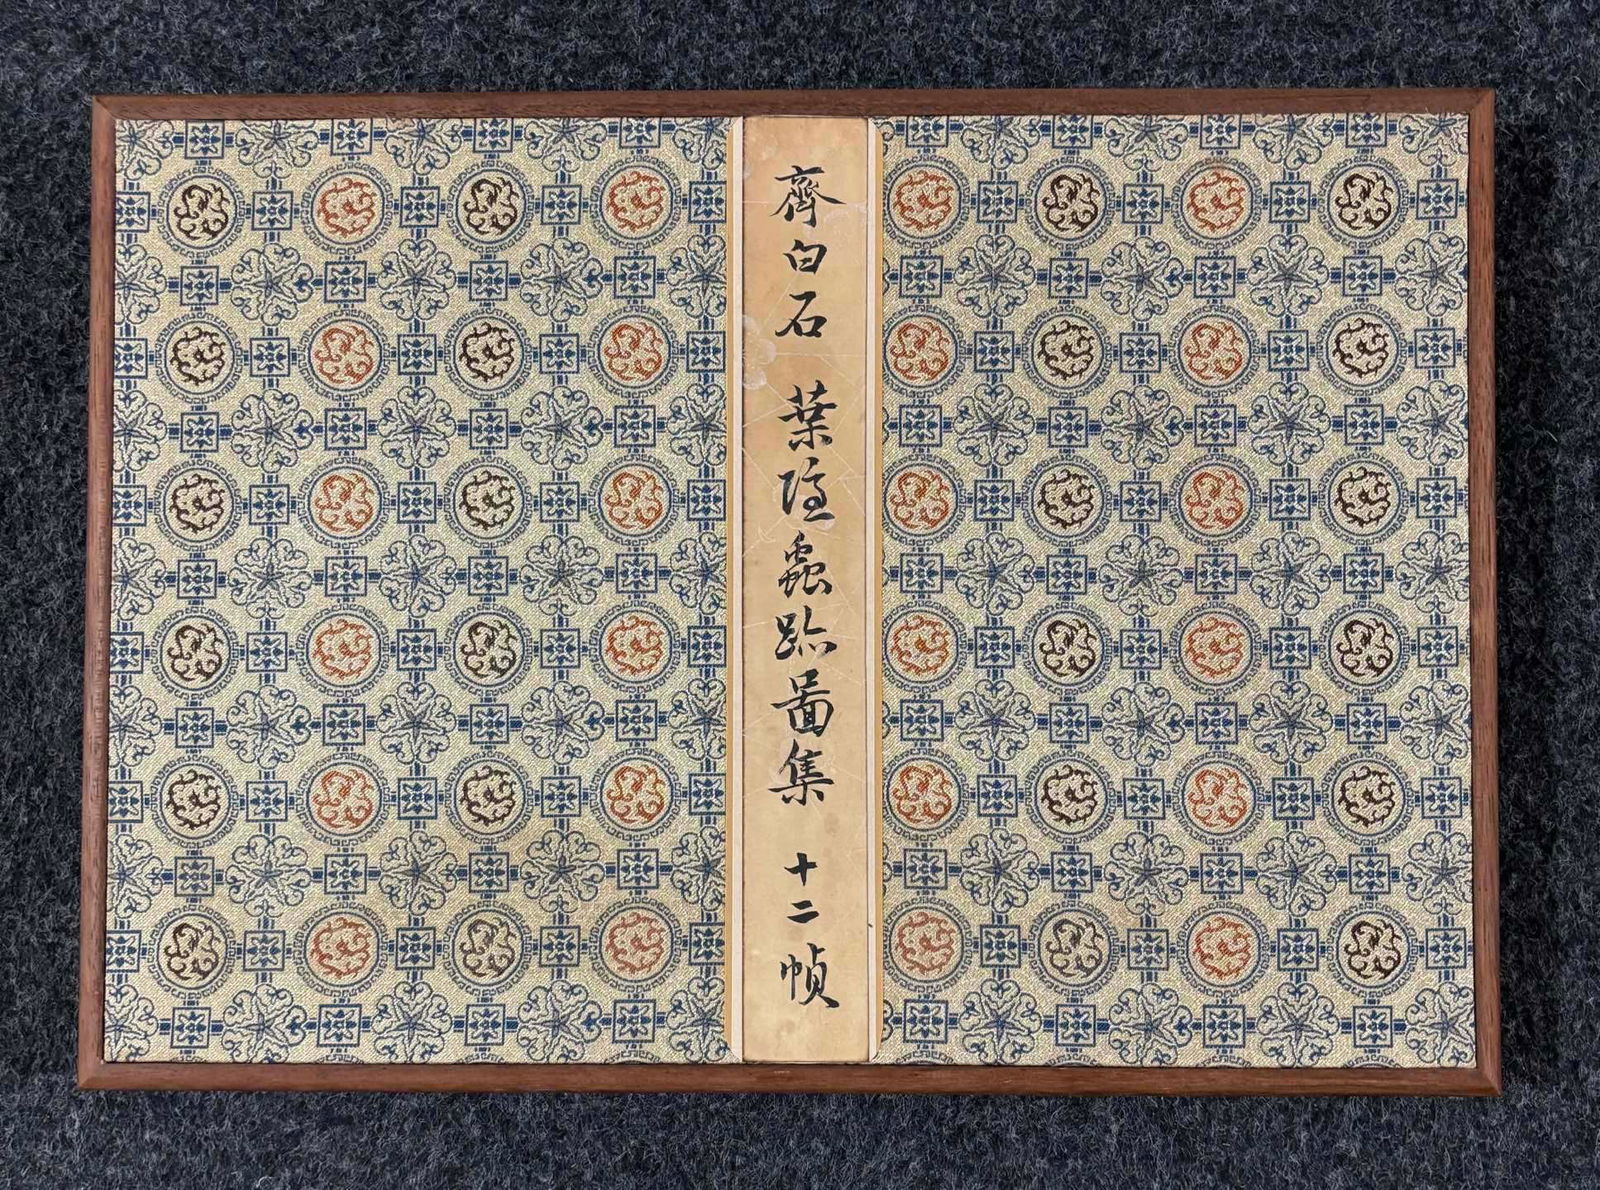 齊白石 葉隱蟲跡啚集 十二幀